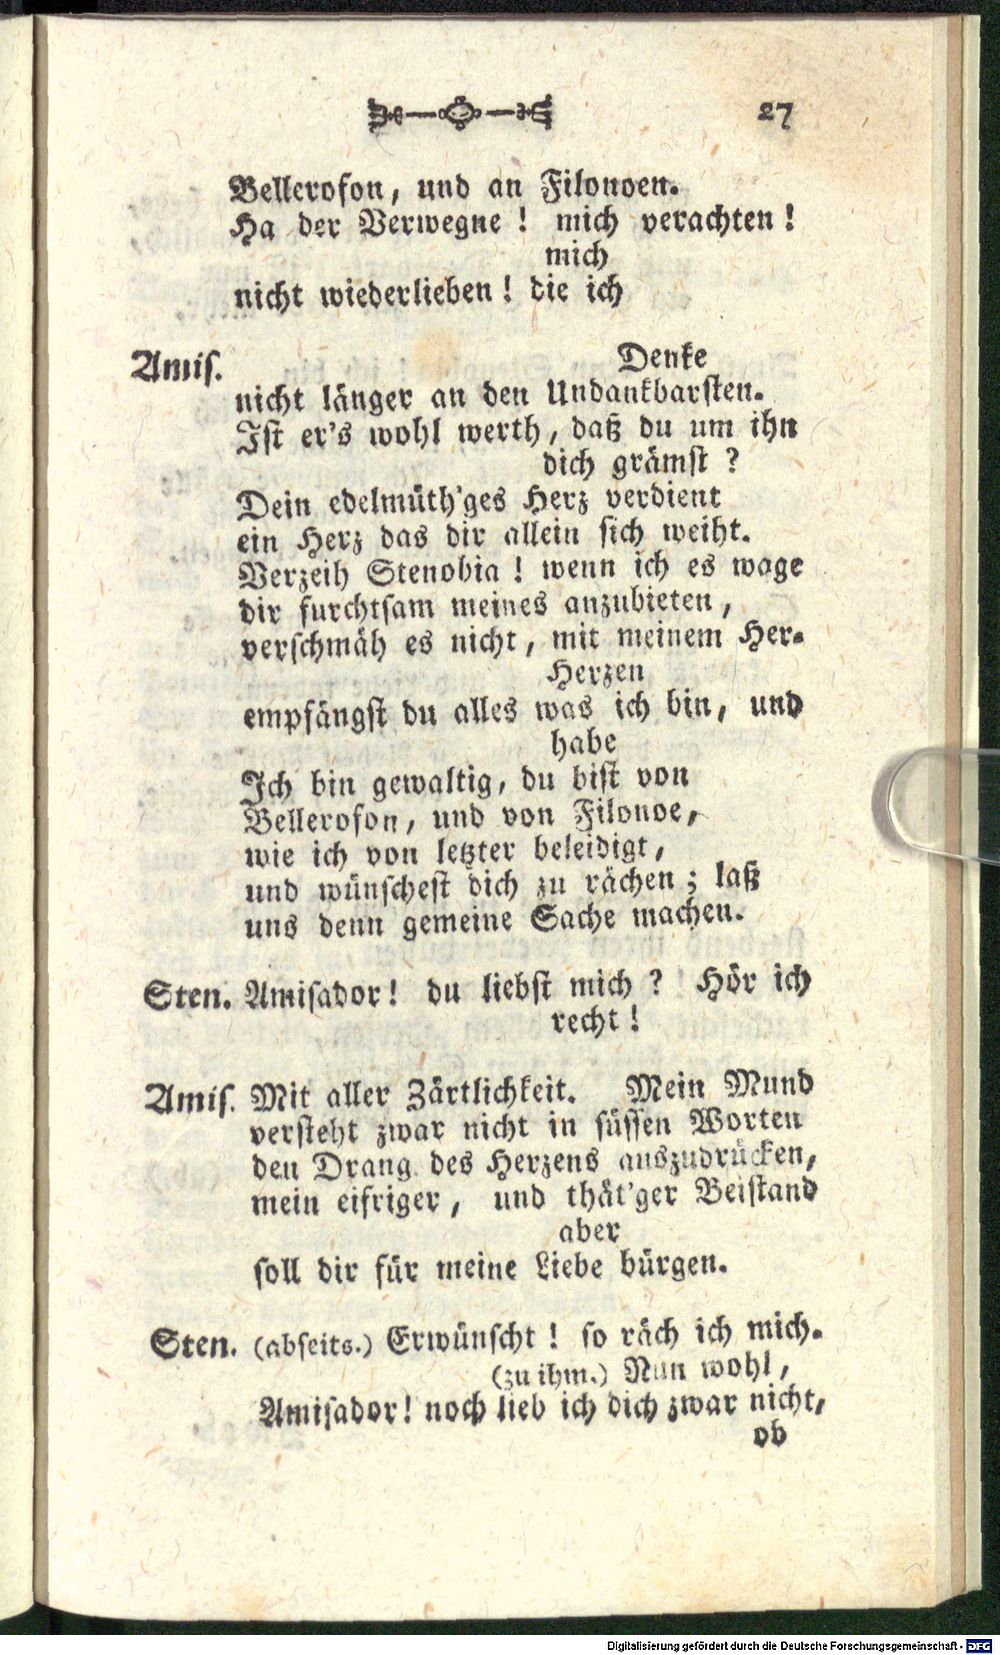 27
Bellerofon, und an Filonoen.
Ha der Verwegne! mich verachten!
mich
nicht wiederlieben! die ich
Amis. Denke
nicht länger an den Undankbarsten.
Ist er's wohl werth, daß du um ihn
dich grämst?
Dein edelmüth'ges Herz verdient
ein Herz das dir allein sich weiht.
Verzeih Stenobia! wenn ich es wage
dir furchtsam meines anzubieten,
verschmäh es nicht, mit meinem Her-
Herzen
empfängst du alles was ich bin, und
habe
Ich bin gewaltig, du bist von
Bellerofon, und von Filonoe,
wie ich von letzter beleidigt,
und wünschest dich zu rächen; laß
uns denn gemeine Sache machen.
Sten. Amisador! du liebst mich? Hör ich
recht!
Amis. Mit aller Zärtlichkeit. Mein Mund
versteht zwar nicht in süssen Worten
den Drang des Herzens auszudrücken,
mein eifriger, und thät'ger Beistand
aber
soll dir für meine Liebe bürgen.
Sten. (abseits.) Erwünscht! so räch ich mich.
(zu ihm.) Nun wohl,
Amisador! noch lieb ich dich zwar nicht,
ob
Digitalisierung gefördert durch die Deutsche Forschungsgemeinschaft - DFG